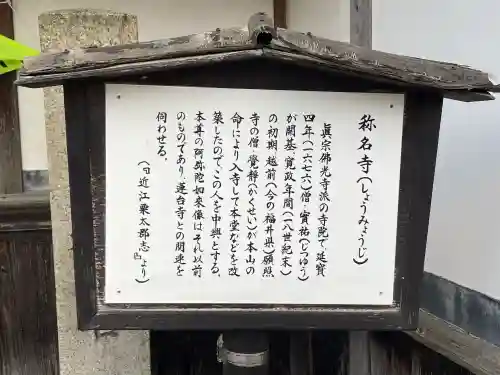 称名寺(しょうみょうじ)
眞宗佛光寺派の寺院で、延寳
四年(一六七六)僧・寳祐(じつゆう)
が開基、寛政年間(一八世紀末)
の初期、越前(今の福井県)願照
寺の僧・覺静(かくせい)が本山の
命により入寺して本堂などを改
築したので、この人を中興とする。
本尊の阿弥陀如来像はそれ以前
のものであり、蓮台寺との関連を
伺わせる。
(『近江栗太郡志』より)